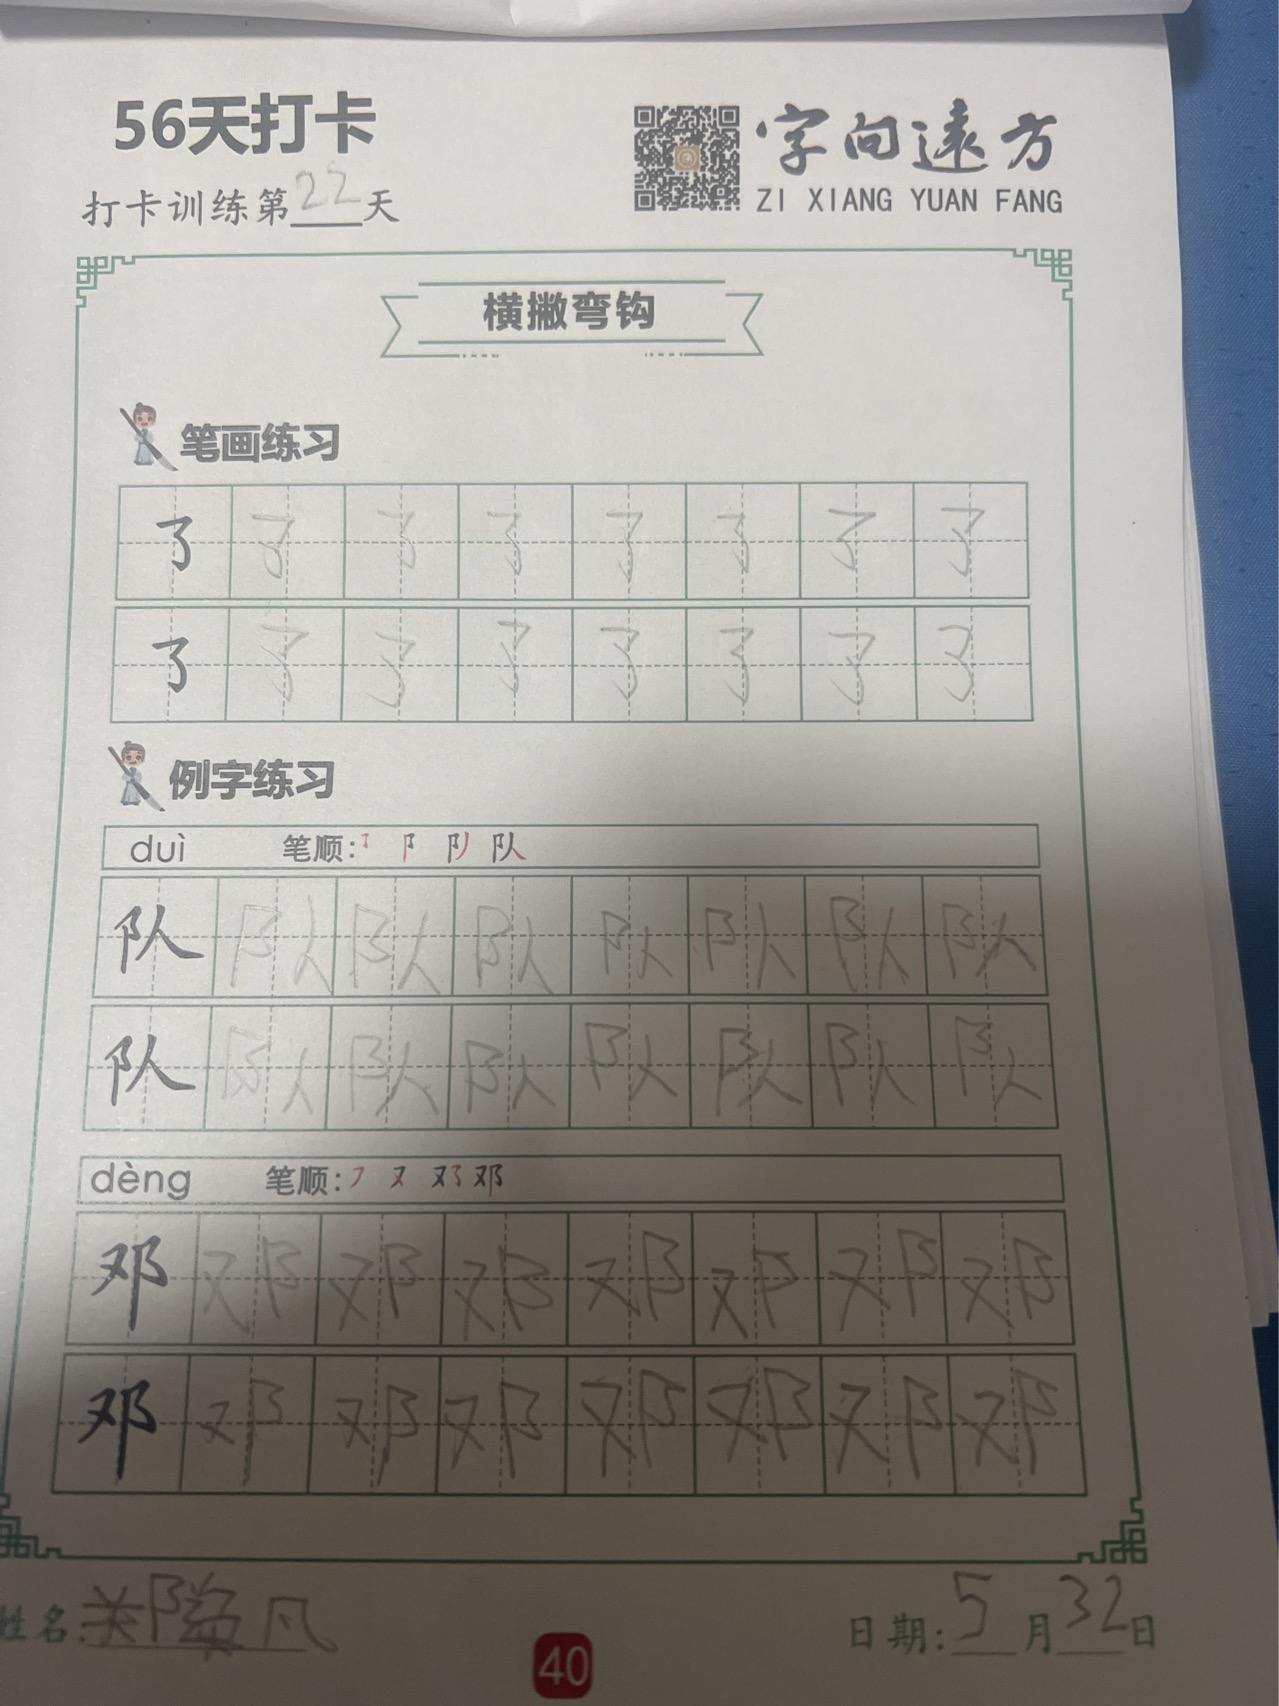 56天打卡
打卡训练第22天
字向远方
ZI XIANG YUAN FANG
横撇弯钩
笔画练习
㇌ ㇌ ㇌ ㇌ ㇌ ㇌ ㇌ ㇌
㇌ ㇌ ㇌ ㇌ ㇌ ㇌ ㇌ ㇌
例字练习
duì 笔顺: ㇌ 阝 队
队 队 队 队 队 队 队 队
队 队 队 队 队 队 队 队
dèng 笔顺: ㇇ 又 邓
邓 邓 邓 邓 邓 邓 邓 邓
邓 邓 邓 邓 邓 邓 邓 邓
姓名: 凡
日期: 5月32日
40